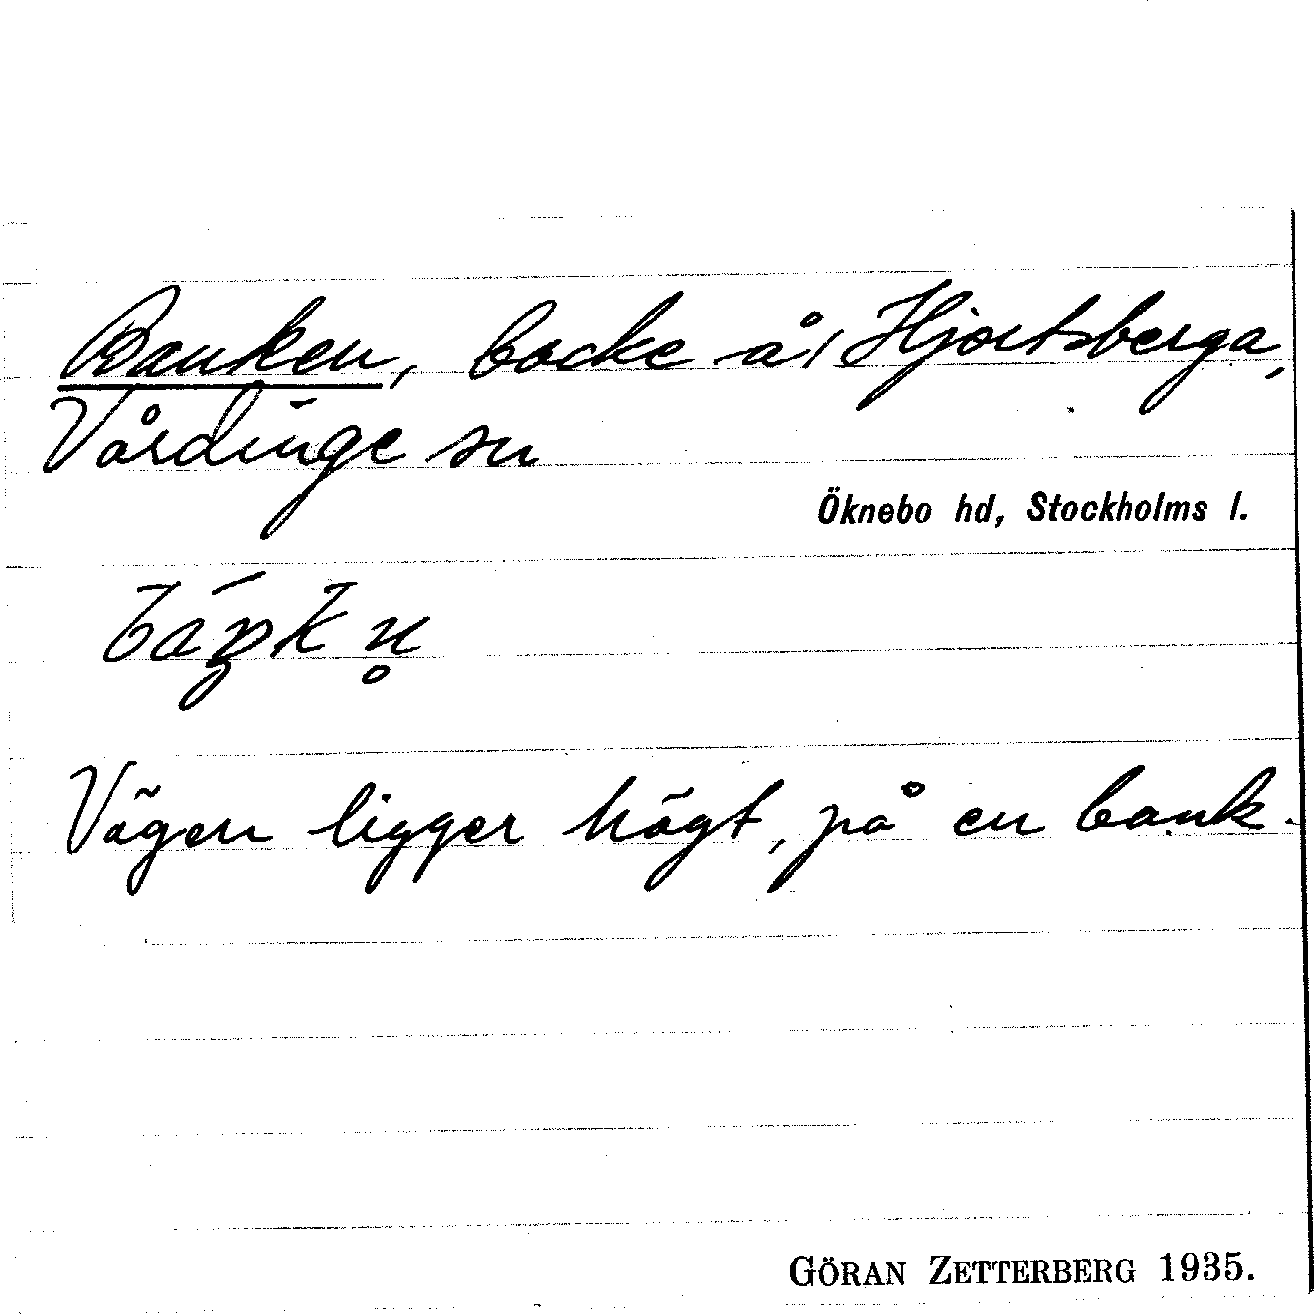 Banken, backe å Hjortsberga,
Vårdinge sn
Öknebo hd, Stockholms l.
báŋkn̥
Vägen ligger högt, på en bank.
GÖRAN ZETTERBERG 1935.